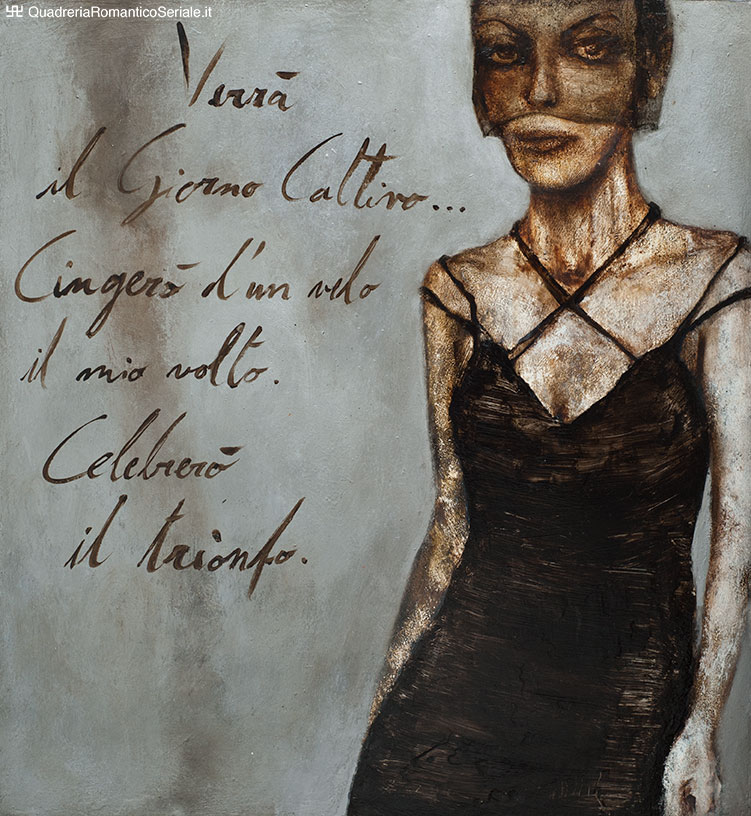 QuadreriaRomanticoSeriale.it
Verrà
il Giorno Cattivo...
Cingerò d'un velo
il mio volto.
Celebrerò
il trionfo.